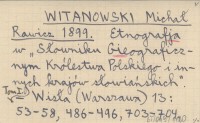 WITANOWSKI Michał
Rawicz 1899. Etnografja
w „Słowniku Gieograficz-
nym Królestwa Polskiego i in-
nych krajów słowiańskich".
Tom I.
Wisła (Warszawa) 13:
53-58, 486-496, 703-704